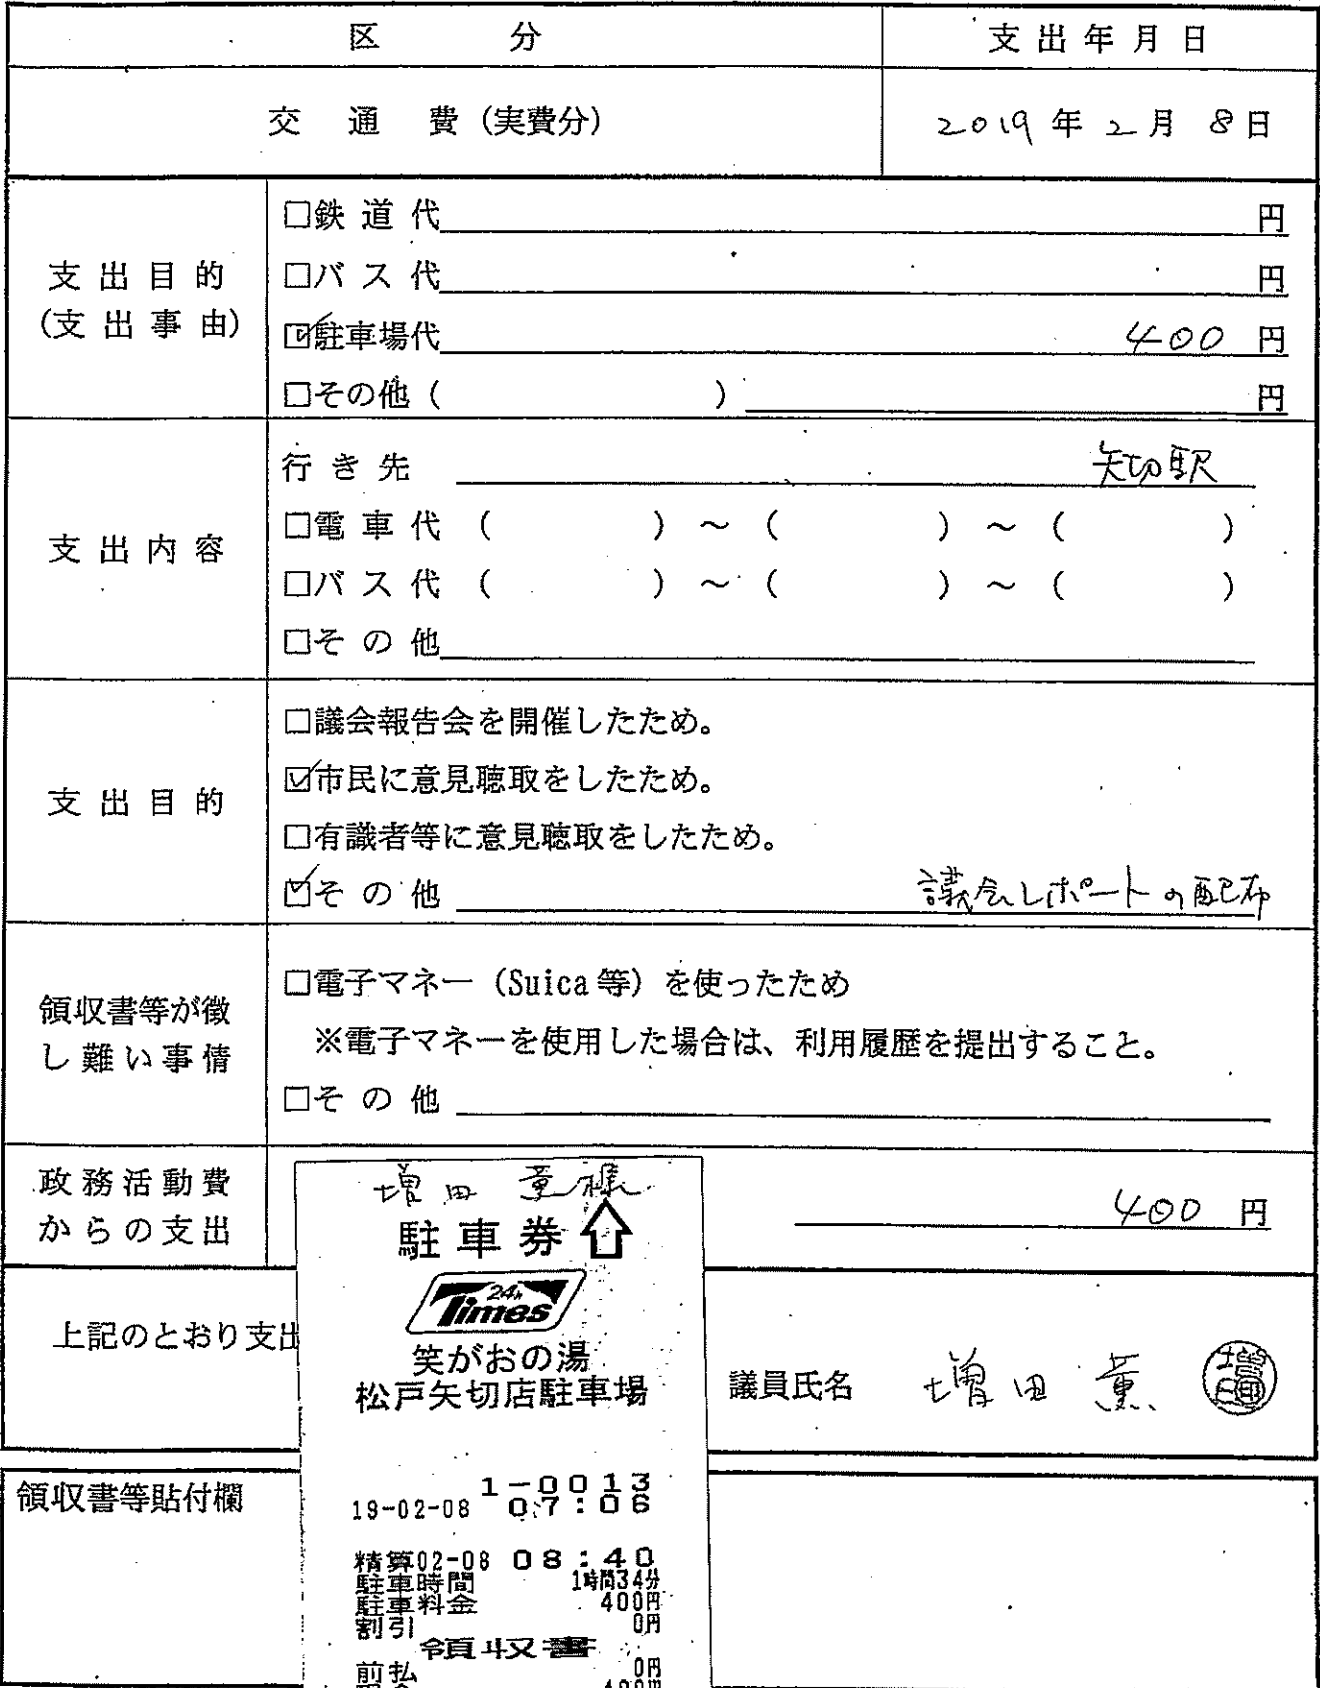 区 分 支出年月日
交 通 費 (実費分) 2019年2月8日
支出目的
(支出事由)
□鉄道代 円
□バス代 円
☑駐車場代 400円
□その他( ) 円
支出内容
行き先 矢切駅
□電車代 ( ) ~ ( ) ~ ( )
□バス代 ( ) ~ ( ) ~ ( )
□その他
支出目的
□議会報告会を開催したため。
☑市民に意見聴取をしたため。
□有識者等に意見聴取をしたため。
☑その他 議会レポートの配布
領収書等が徴
し難い事情
□電子マネー(Suica等)を使ったため
※電子マネーを使用した場合は、利用履歴を提出すること。
□その他
政務活動費
からの支出
400円
上記のとおり支出
議員氏名 増田 薫 増田
領収書等貼付欄
増田 薫様
駐車券
24h Times
笑がおの湯
松戸矢切店駐車場
1-0013
19-02-08 07:06
精算02-08 08:40
駐車時間 1時間34分
駐車料金 400円
割引 0円
領収書
前払 0円